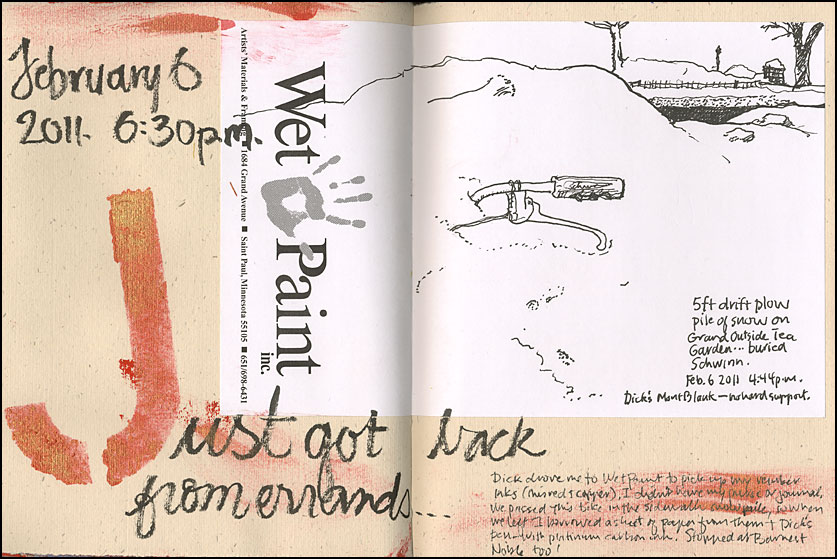 February 6
2011. 6:30p.m.
Artists' Materials & Framing ■ 1684 Grand Avenue ■ Saint Paul, Minnesota 55105 ■ 651/698-6431
Wet Paint
inc.
5ft drift plow
pile of snow on
Grand Outside Tea
Garden... buried
Schwinn.
Feb. 6 2011 4:44p.m.
Dick's MontBlank — no hand support.
Just got back
from errands...
Dick drove me to WetPaint to pick up my
inks (mixed copper), I didn't have my purse or journal,
We passed this bike in the sidewalk snowpile, so when
we left I borrowed a sheet of paper from them + Dick's
pen—with platinum carbon ink. Stopped at Barnes+
Noble too!